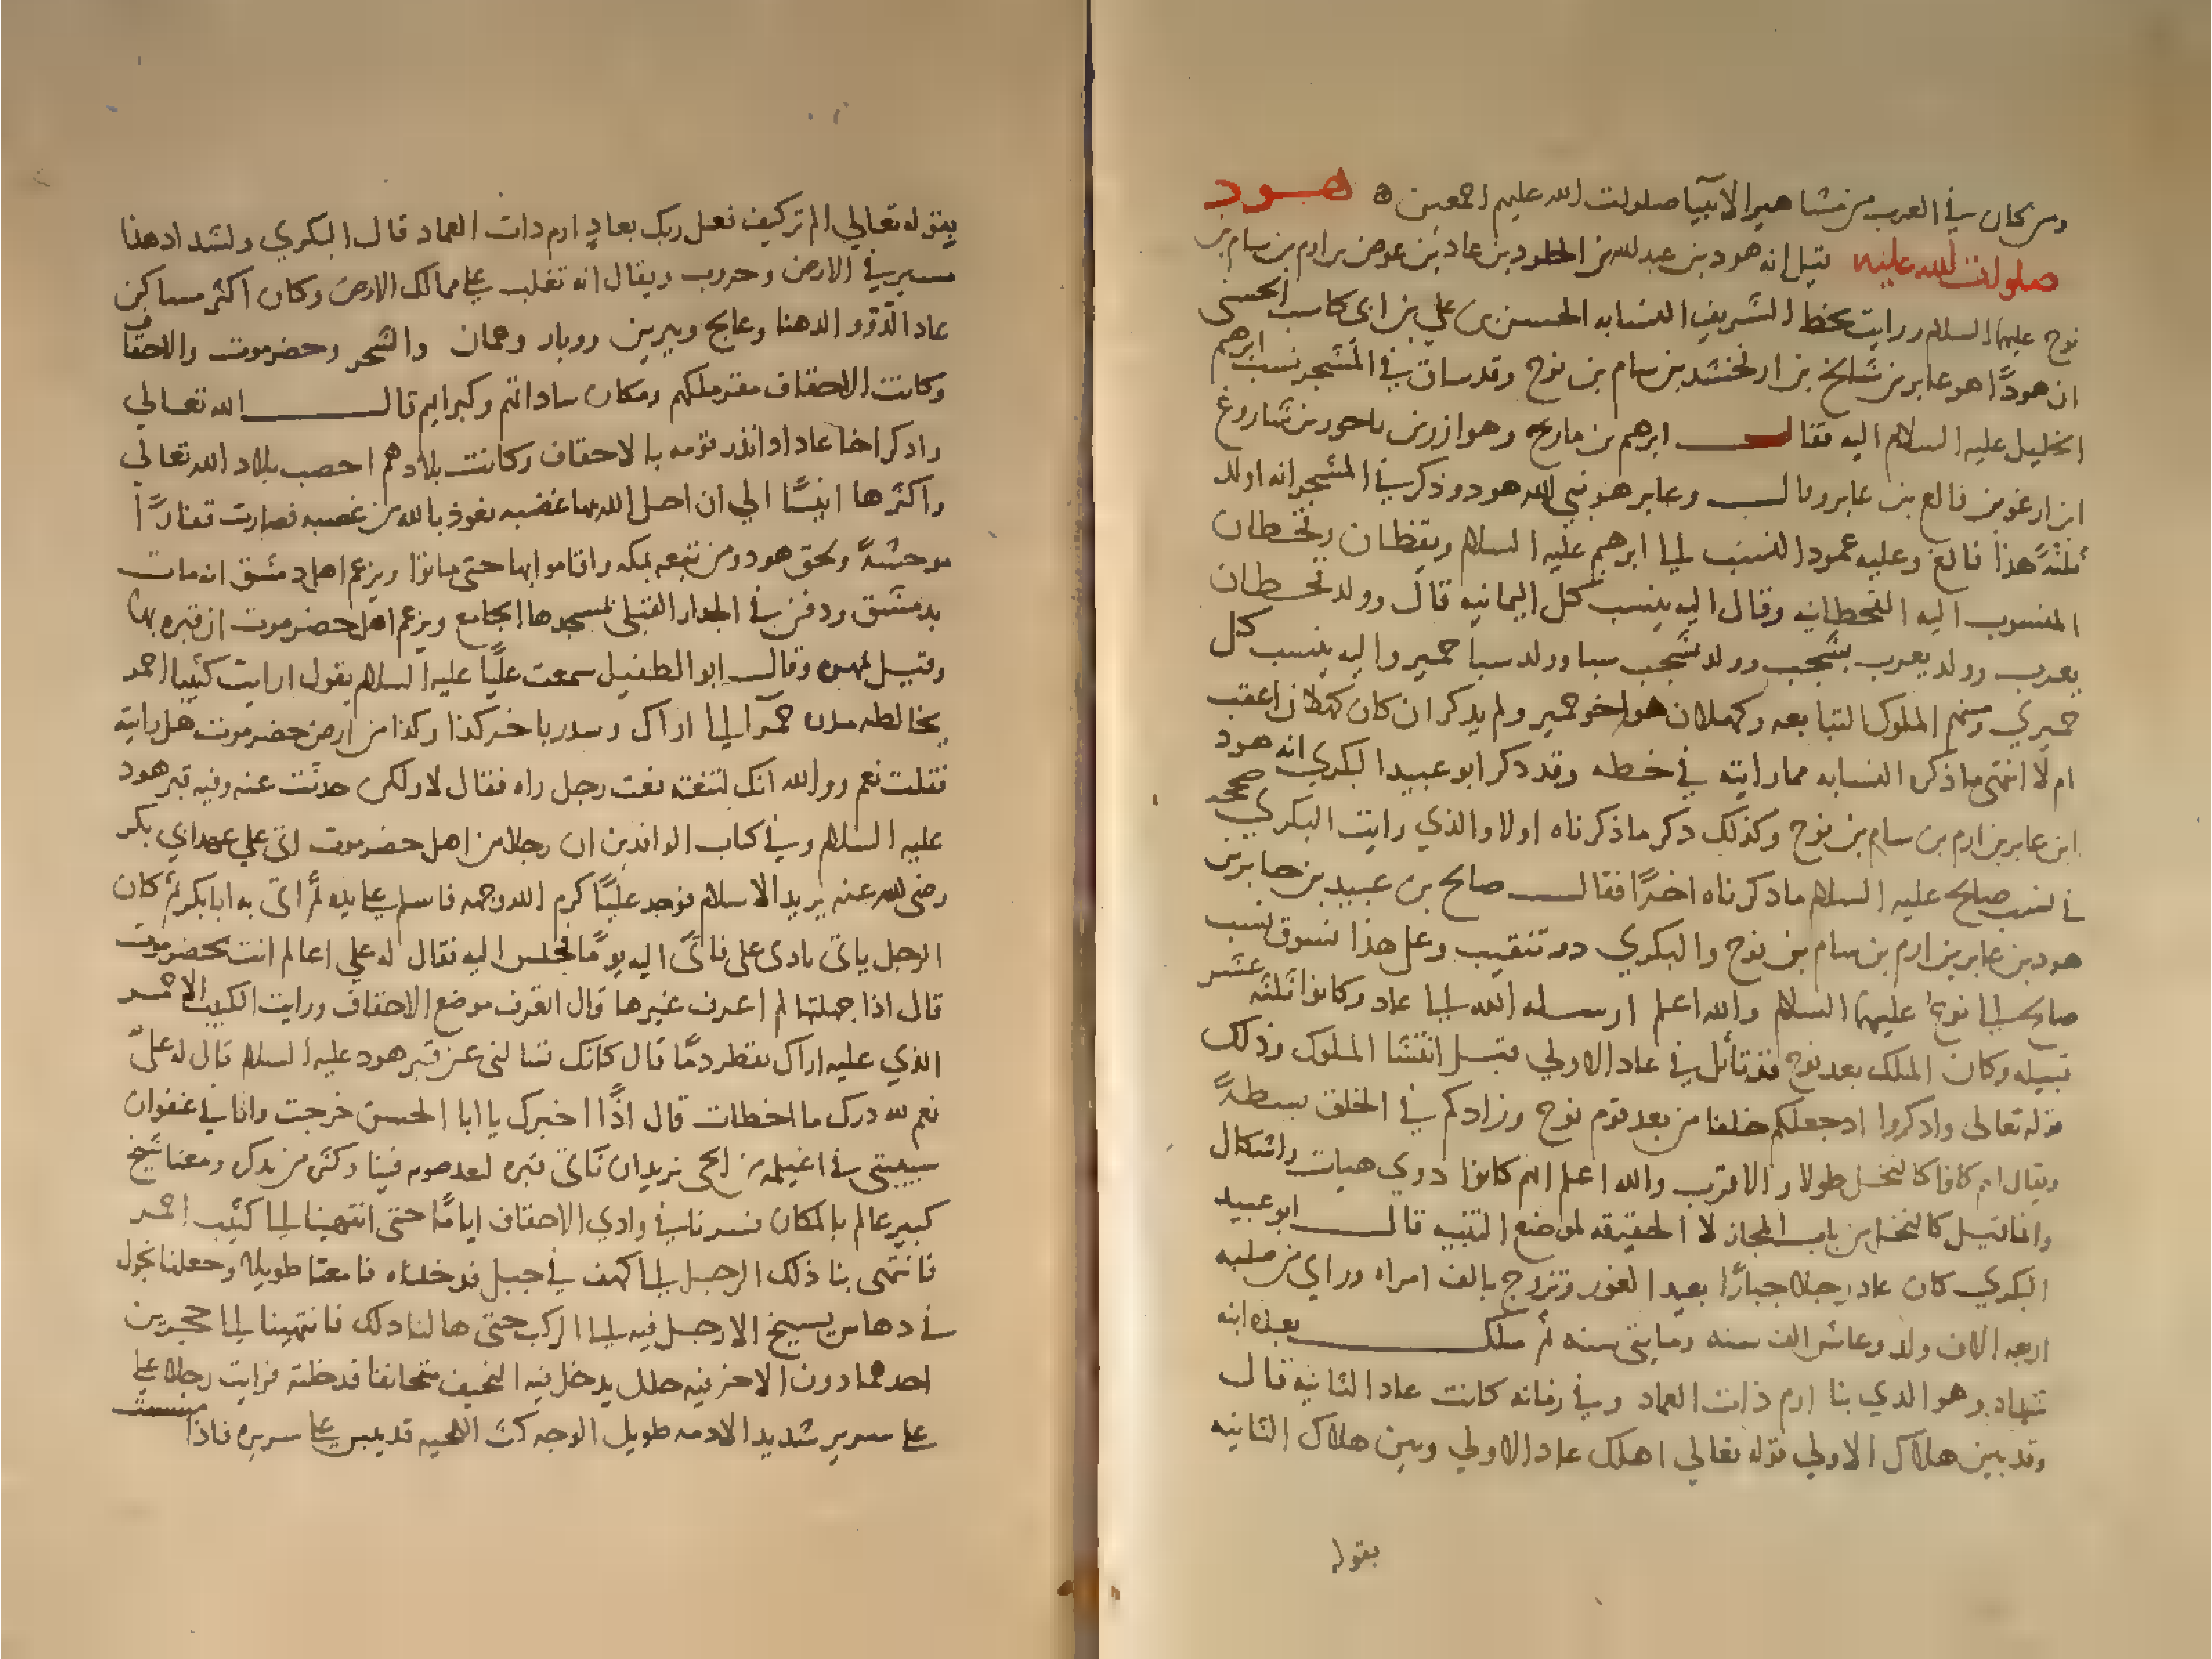 ومن كان في العرب من مشاهير الانبيا صلوات الله عليهم اجمعين ه هــود
صلوات الله عليه قيل انه هود بن عبد الله بن الخلود بن عاد بن عوص بن ارم بن سام بن
نوح عليهما السلام ورايت بخط الشريف النسابه الحسن بن علي بن ابي كاسب الحسني
ان هودًا هو عابر بن شالخ بن ارفخشد بن سام بن نوح وقد ساق في المشجر نسب ابرهيم
الخليل عليه السلام اليه فقال ابرهيم بن مارح وهو ازر بن ناحور بن شاروغ
ابن ارغو بن فالغ بن عابر وقال وعابر هو نبي الله هود وذكر في المشجر انه اولد
ثلثةً هذا فالغ وعليه عمود النسب ليا ابرهيم عليه السلام ويقظان وقحطان
المنسوب اليه القحطانيه وقال اليه ينسب كل اليمانيه قال وولد قحطان
يعرب وولد يعرب يشجب وولد يشجب سبا وولد سبا حمير واليه ينسب كل
حميري ومنهم الملوك التبابعه وكهلان هو اخو حمير ولم يذكر ان كان كهلان اعقب
ام لا انتهى ما ذكره النسابه مما رايته في خطه وقد ذكر ابو عبيد البكري انه هود
ابن عابر بن ارم بن سام بن نوح وكذلك ذكر ما ذكرناه اولا والذي رايت البكري صححه
في نسب صالح عليه السلام ما ذكرناه اخرًا فقال صالح بن عبيد بن جابر بن
هود بن عابر بن ارم بن سام بن نوح والبكري ذو تنقيب وعلى هذا نسوق نسب
صالح ليا نوح عليهما السلام والله اعلم ارسله الله ليا عاد وكانوا ثلثة عشر
قبيله وكان الملك بعد نوح قد تأثل في عاد الاولي قبل انتشا الملوك وذلك
قوله تعالى واذكروا اذ جعلكم خلفا من بعد قوم نوح وزادكم في الخلق بسطةً
ويقال انهم كانوا كالنخل طولا والاقرب والله اعلم انهم كانوا ذوي هيات واشكال
وانما قيل كالنخل من باب المجاز لا الحقيقه لموضع التنبيه قال ابو عبيد
البكري كان عاد رجلا جبارًا بعيد الغور وتزوج بالف امراه وراي من صلبه
اربعه الاف ولد وعاش الف سنه ومايتي سنه ثم ملك بعده ابنه
شداد وهو الذي بنا ارم ذات العماد وفي زمانه كانت عاد الثانيه قال
وقد بين هلاك الاولي قوله تعالي اهلك عاد الاولي وبين هلاك الثانيه
بقوله
بقوله تعالي الم تر كيف فعل ربك بعادٍ ارم ذات العماد قال البكري ولشداد هذا
مسير في الارض وحروب ويقال انه تغلب علي ممالك الارض وكان اكثر مساكن
عاد الدوو الدهنا وعالج ويبرين ووبار وعمان والشحر وحضرموت والاحقاف
وكانت الاحقاف مقر ملكهم ومكان ساداتهم وكبرايهم قال الله تعالي
واذكر اخا عاد اذ انذر قومه بالاحقاف وكانت بلادهم اخصب بلاد الله تعالي
واكثرها انيسًا الي ان احل الله بها غضبه نعوذ بالله من غضبه فصارت قفارًا
موحشةً ولحق هود ومن تبعه بمكه واقاموا بها حتى ماتوا ويزعم اهل دمشق انه مات
بدمشق ودفن في الجدار القبلي لمسجدها الجامع ويزعم اهل حضرموت ان قبره بها
وقيل بمهره وقال ابو الطفيل سمعت عليًا عليه السلام يقول ارايت كثيبا احمر
يخالطه مدره حمرا ليا اراك وسدر باخر كذا وكذا من ارض حضرموت هل رايته
فقلت نعم ووالله انك لتنعته نعت رجل راه فقال لا ولكن حدثت عنه وفيه قبر هود
عليه السلام وفي كتاب الوافدين ان رجلا من اهل حضرموت اتى علي عهد ابي بكر
رضي الله عنه يريد الاسلام فوجد عليًا كرم الله وجهه فاسلم علي يده ثم اتى به ابا بكر ثم كان
الرجل ياتي نادي علي فاتى اليه يومًا فجلس اليه فقال له علي اعالم انت بحضرموت
قال اذا جهلتها لم اعرف غيرها قال اتعرف موضع الاحقاف ورايت الكثيب الاحمر
الذي عليه اراك يقطر دمًا قال كانك تسالني عن قبر هود عليه السلام قال له علي
نعم لله درك ما اخطات قال اذًا اخبرك يا ابا الحسن خرجت وانا في عنفوان
شبيبتي في اغيلمه من الحي نريد ان ناتي قبره لبعد صوته فينا وكثره من يذكره ومعنا شيخ
كبير عالم بالمكان فسرنا في وادي الاحقاف ايامًا حتى انتهينا ليا كثيب احمر
فانتهى بنا ذلك الرجل ليا كهف في جبل فدخلناه فامعنا طويلا وجعلنا نجول
في دهاس يسيخ الارجل فيه ليا الركب حتى هالنا ذلك فانتهينا ليا حجرين
احدهما دون الاخر فيه خلل يدخل فيه النحيف متجانفا فدخلته فرايت رجلا علي
علي سرير شديد الادمه طويل الوجه كث اللحيه قد يبس علي سريره فاذا